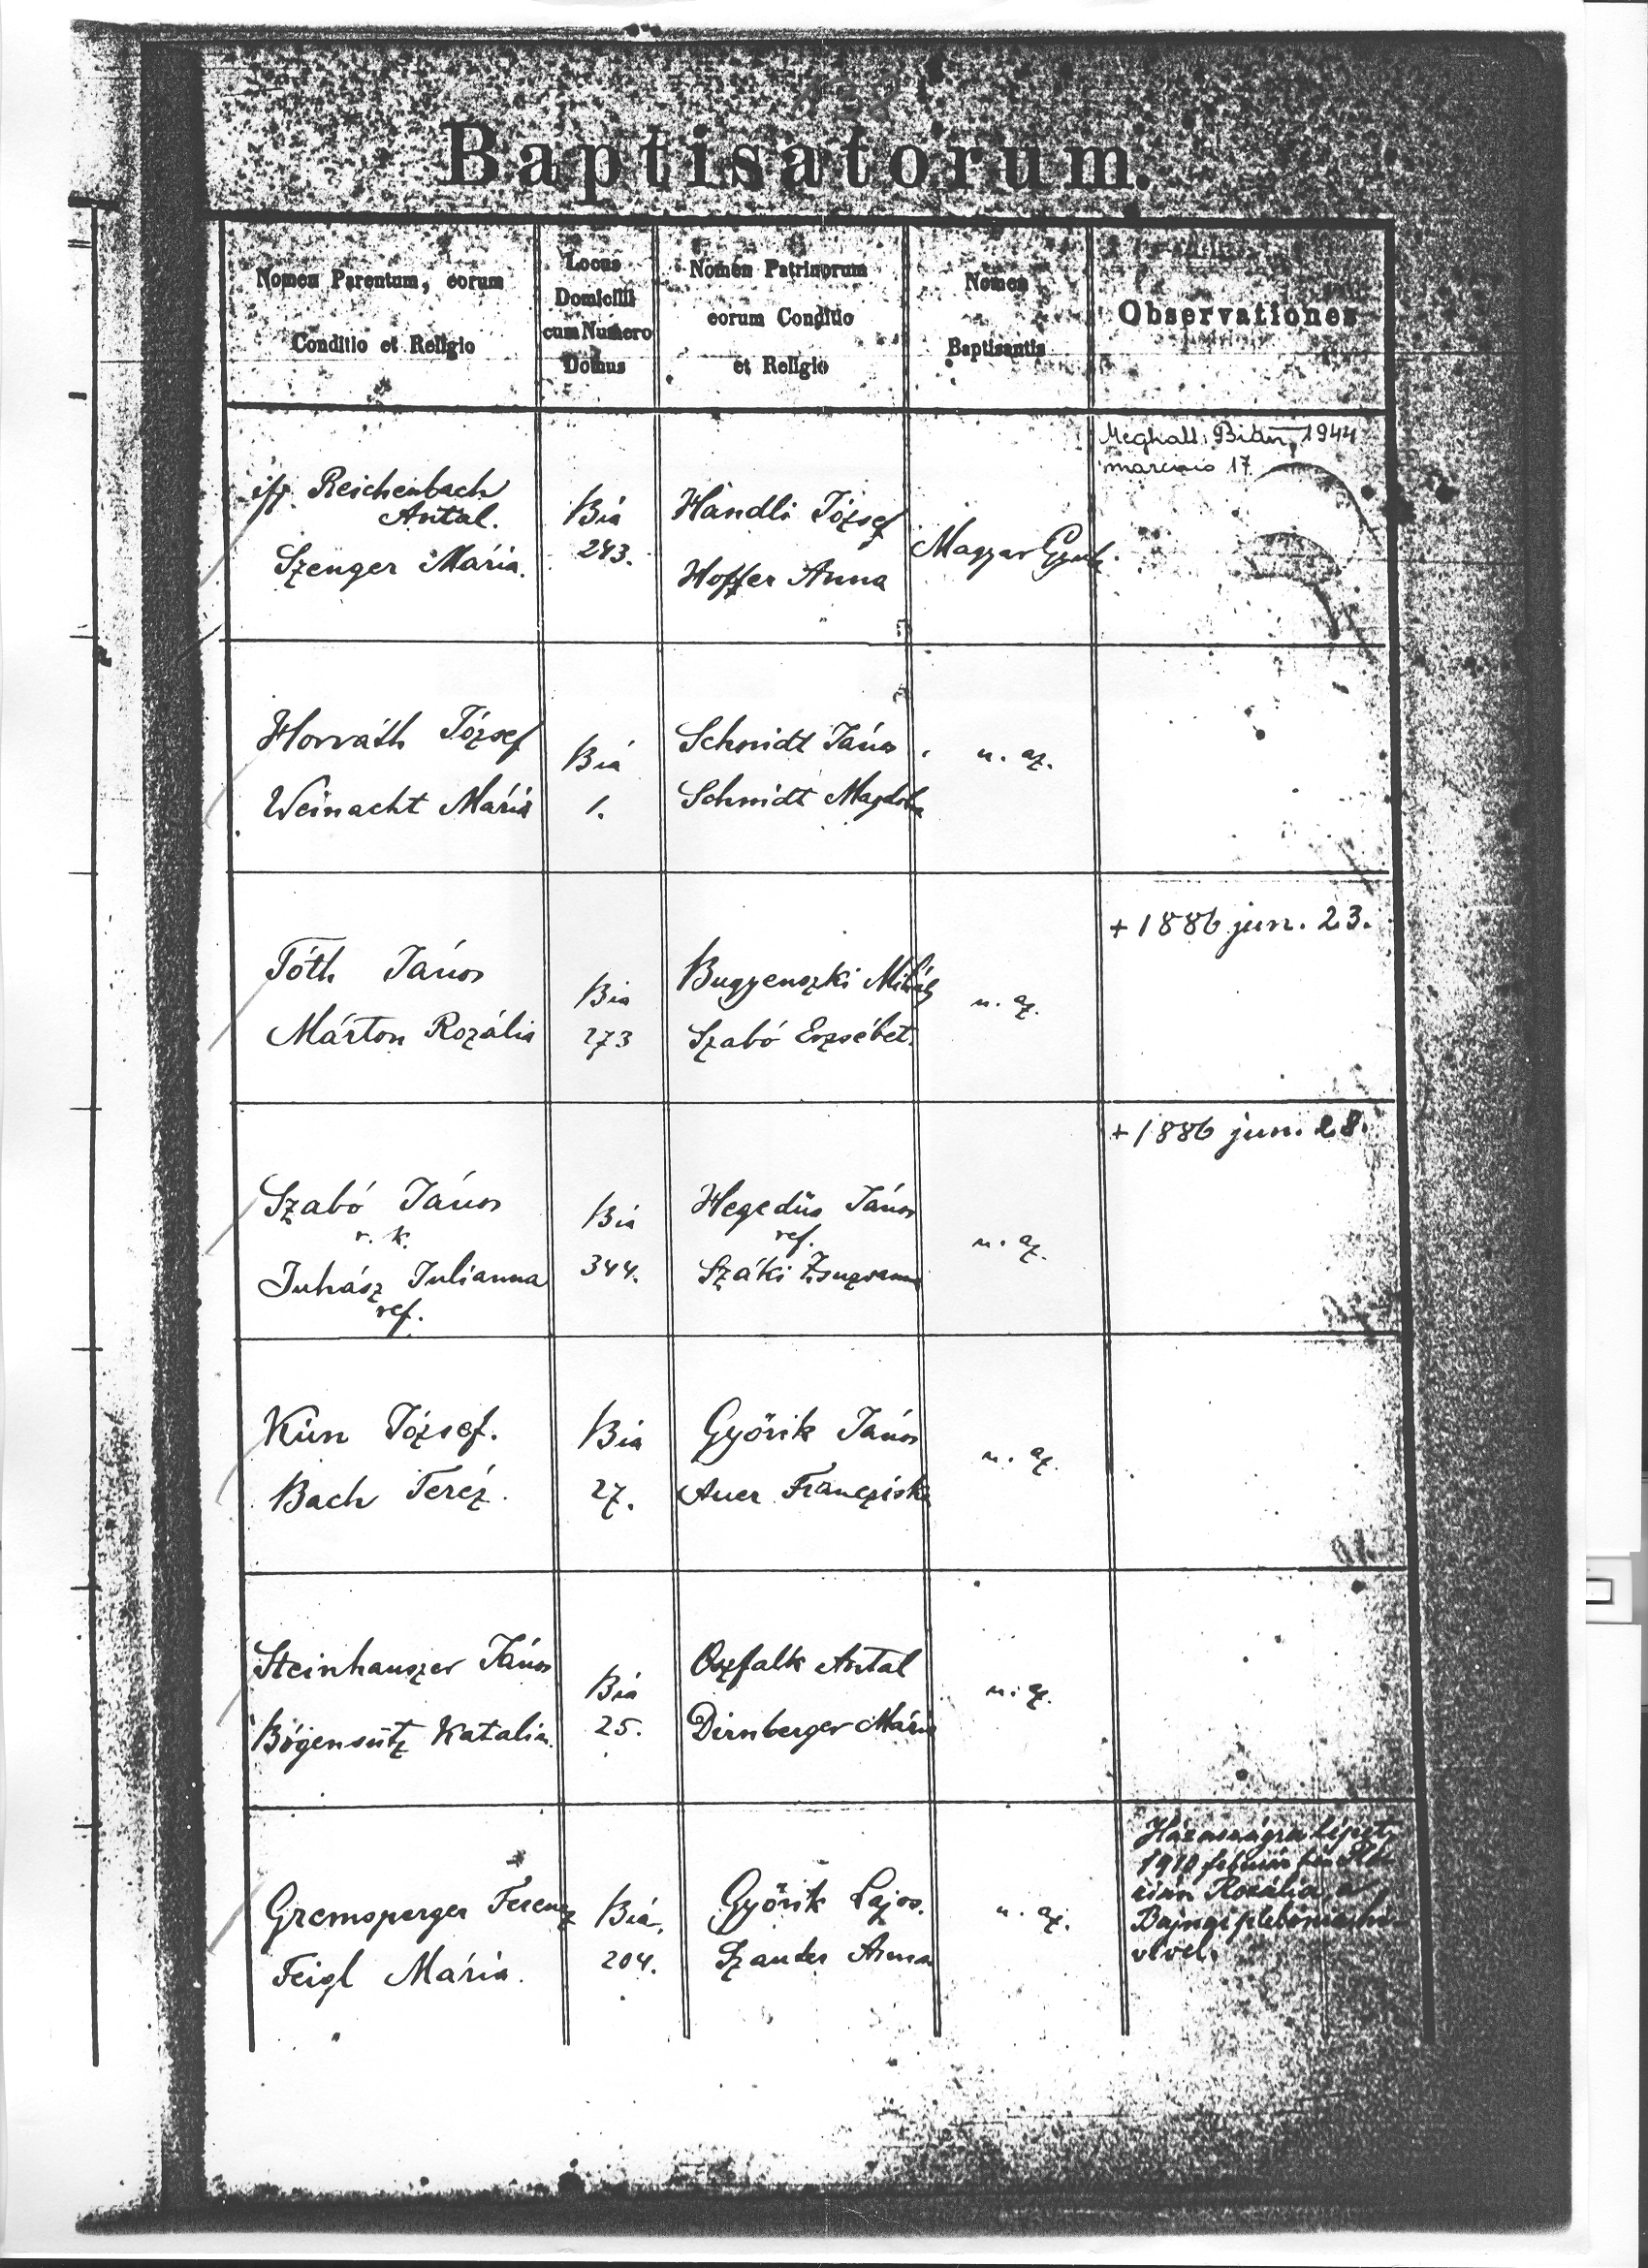 Baptisatorum.
Nomen Parentum, eorum
Conditio et Religio
Locus
Domicilii
cum Numero
Domus
Nomen Patrinorum
eorum Conditio
et Religio
Nomen
Baptisantis
Observationes
ifj. Reichenbach
Antal.
Szenger Mária.
Bia
243.
Handli József
Hoffer Anna
Magyar
Meghalt: Bián, 1944
március 17.
Horváth József
Weinacht Mária
Bia
1.
Schmidt János
Schmidt Magdolna
u. az.
Tóth János
Márton Rozália
Bia
273
Bugyenszki Mihály
Szabó Erzsébet.
u. az.
+ 1886 jun. 23.
Szabó János
r. k.
Juhász Julianna
ref.
Bia
344.
Hegedüs János
ref.
Száki Zsuzsanna
u. az.
+ 1886 jun. 28.
Kún József.
Bach Teréz.
Bia
27.
Győrik János
Auer Francziska
u. az.
Steinhauszer János
Bógensütz Katalin.
Bia
25.
Oszfalk Antal
Dirnberger Mária
u. az.
Gremsperger Ferencz
Feigl Mária.
Bia.
204.
Győrik Lajos.
Szauter Anna
u. az.
Házasságra lépett
1910 február
Rozália a
Bajnai
vével.